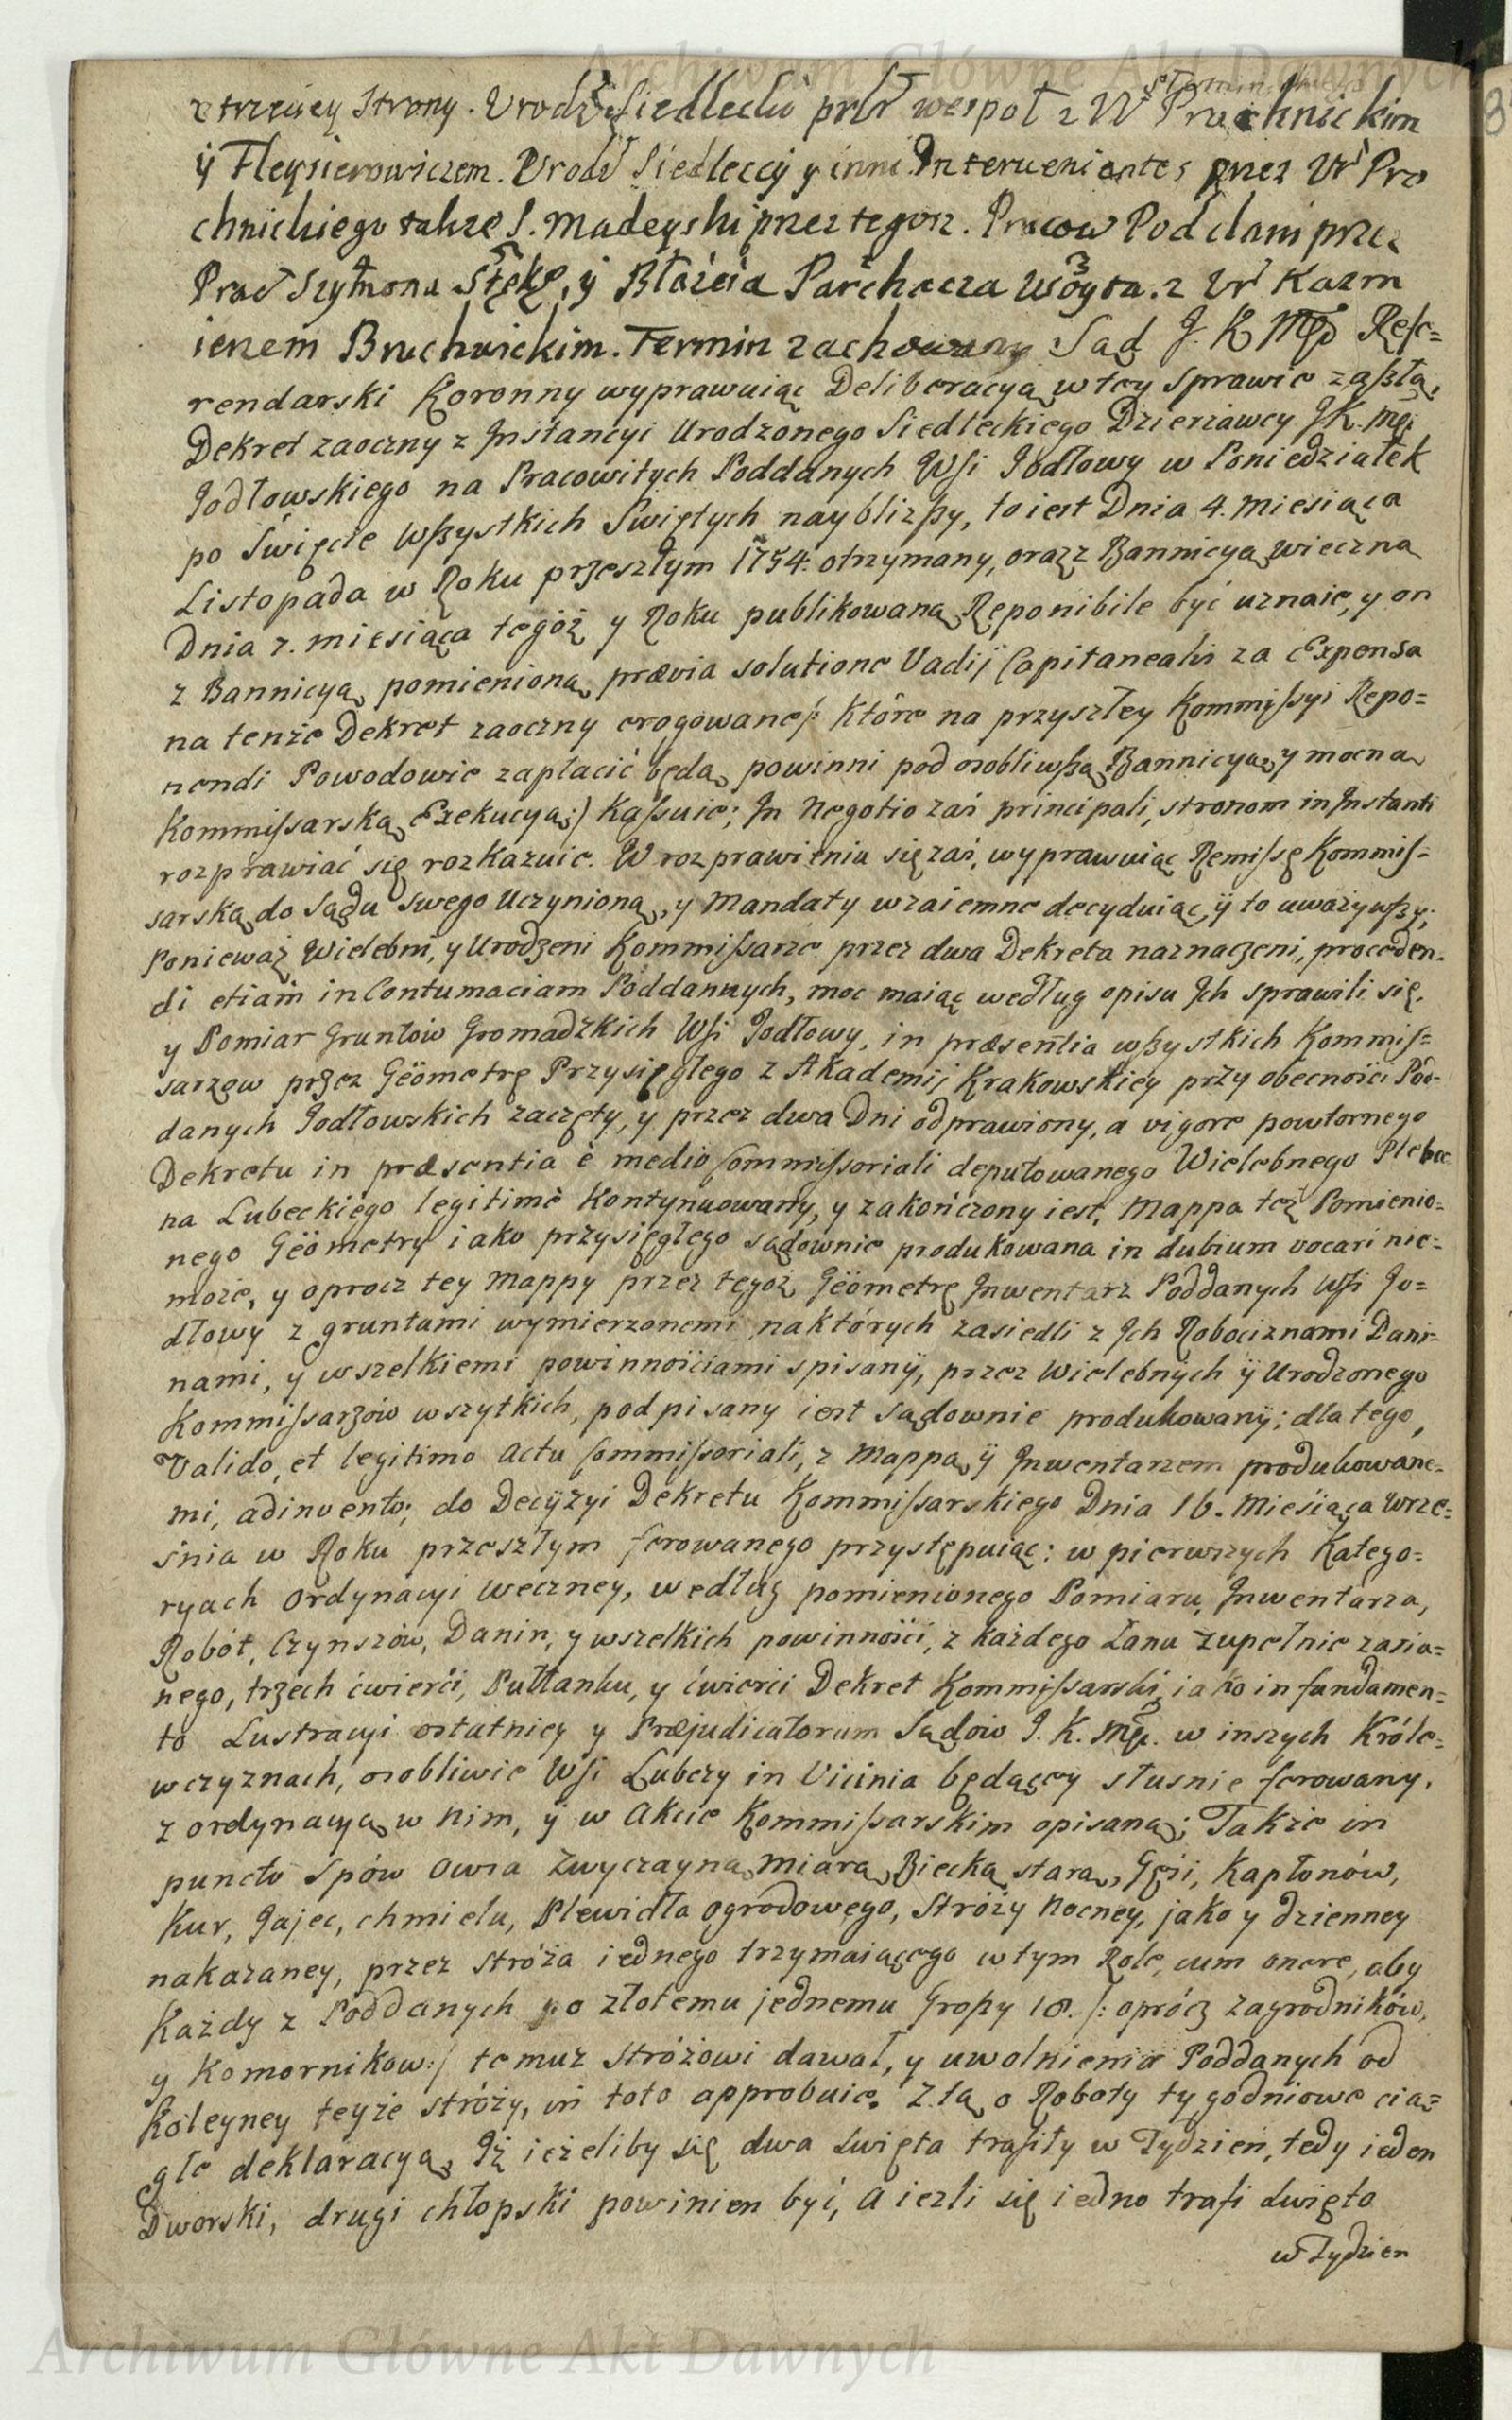 Archiwum Główne Akt Dawnych
z trzeciey Strony. Urodź Siedlecki prtr wespoł z Wr Pruchnickim
ÿ Fleysierowiczem. Urodź Siedleccÿ y inni Intervenientes przez Ur Pro
chnickiego także S. Madeyski przez tegoz. Pracow Poddani przez
Prac Szymona Stękę, ÿ Błażeia Parchacza Woyta. z Ur Kazm
ierzem Bruchnickim. Termin zachowany Sąd J. K Mći Refe=
rendarski Koronny wyprawuiąc Deliberacyą w tey Sprawie zaszłą,
Dekret zaoczny z Instancyi Urodzonego Siedleckiego Dzierżawcy JK. Mći
Jodłowskiego na Pracowitych Poddanych Wsi Jodłowy w Poniedziałek
po Święcie Wszystkich Świętych naybliższy, to iest Dnia 4. Miesiąca
Listopada w Roku przeszłym 1754. otrzymany, oraz z Bannicyą wieczną
Dnia 7. miesiąca tegóż y Roku publikowaną Reponibile być uznaie, y on
z Bannicyą pomienioną prævia solutione Vadij Capitanealis za Expensa
na tenże Dekret zaoczny erogowane /: Które na przyszłey Kommissyi Repo=
nendi Powodowie zapłacić będą powinni pod osobliwszą Bannicyą, y mocną
Kommissarską Exekucyą :/ Kassuie; In Negotio zaś principali, stronom in Instanti
rozprawiać się rozkazuie. W rozprawieniu się zaś, wyprawuiąc Remissę Kommis=
sarską do Sądu swego Uczynioną, y Mandaty wzaiemne decyduiąc, ÿ to uważywszy;
Ponieważ Wielebni, y Urodzeni Kommissarze przez dwa Dekreta naznaczeni, proceden=
di etiam in Contumaciam Poddannych, moc maiąc według opisu Ich sprawili się,
y Pomiar Gruntów Gromadzkich Wsi Jodłowy, in præsentia wszystkich Kommis=
sarzow przez Gëometrę Przysięgłego z Akademij Krakowskiey przy obecności Pod=
danych Jodłowskich zaczęty, y przez dwa Dni odprawiony, a vigore powtornego
Dekretu in præsentia è medio Commissoriali deputowanego Wielebnego Pleba
na Lubeckiego legitimè Kontynuowany, y zakończony iest, Mappa też Pomienio=
nego Gëometry iako przysięgłego sądownie produkowana in dubium vocari nie=
może, y oprocz tey Mappy przez tegoż Gëometrę Inwentarz Poddanych Wsi Jo=
dłowy z gruntami wymierzonemi na których zasiedli z Ich Robociznami Dani=
nami, y wszelkiemi powinnościami spisanÿ, przez Wielebnych ÿ Urodzonego
Kommissarzów wszytkich, podpisany iest sądownie produkowanÿ; dla tego,
Valido, et legitimo Actu Commissoriali, z Mappą ÿ Inwentarzem produkowane=
mi, adinvento; do Decyzyi Dekretu Kommissarskiego Dnia 16. Miesiąca Wrze=
śnia w Roku przeszłym ferowanego przystępuiąc: w pierwszych Katego=
ryach Ordynacyi Weczney, według pomienionego Pomiaru, Inwentarza,
Robót, Czynszów, Danin, y wszelkich powinności, z każdego Łanu zupełnie zasia=
nego, trzech ćwierći, Pułłanku, y ćwierci Dekret Kommissarski, iako in fundamen=
to Lustracyi ostatniey y Præjudicatorum Sądów J. K. Mći. w inszych Króle=
wczyznach, osobliwie Wsi Lubczy in Vicinia będącey słusnie ferowany,
z ordynacyą w Nim, ÿ w Akcie Kommissarskim opisaną; Także in
puncto Spów Owsa Zwyczayną Miarą Biecką starą, Gęsi, Kapłonów,
Kur, Jajec, chmielu, Plewidła ogrodowego, Stróży Nocney, jako y dzienney
nakazaney, przez Stróża iednego trzymaiącego w tym Rolę, cum onere, aby
Każdy z Poddanych po złotemu jednemu Groszy 18. /: oprócz zagrodników,
y Komornikow :/ temuż Stróżowi dawał, y uwolnienia Poddanych od
Koleyney teyże stróży, in toto approbuie. Z tą o Roboty tygodniowe cią=
głe deklaracyą, Iż ieżeliby się dwa swięta trafiły w Tydzień, tedy ieden
Dworski, drugi chłopski powinien być, A iezli się iedno trafi swięto
w Tydzien
Archiwum Główne Akt Dawnych